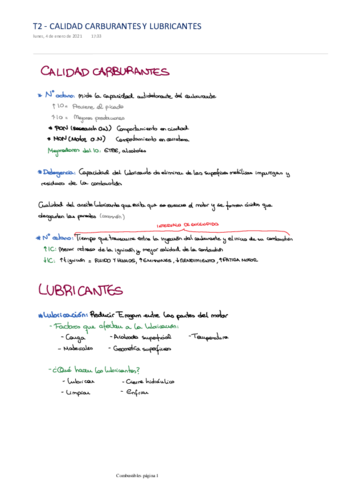 T2 - CALIDAD CARBURANTES Y LUBRICANTES
lunes, 4 de enero de 2021 17:33
CALIDAD CARBURANTES
* Nº octano: mide la capacidad antidetonante del carburante
↑IO = Previene el picado
↑IO = Mejores prestaciones
* RON (Research O.N) Comportamiento en ciudad
* MON (Motor O.N) Comportamiento en carretera
Mejoradores del IO: ETBE, alcoholes
* Detergencia: Capacidad del lubricante de eliminar de las superficies metálicas impurezas y
residuos de la combustión
Cualidad del aceite lubricante que evita que se ensucie el motor y se formen ácidos que
desgasten las paredes
* Nº cetano: Tiempo que transcurre entre la inyección del carburante y el inicio de su combustión
↑IC: Menor retraso de la ignición y mejor calidad de la combustión
↓IC: ↑↑ignición = RUIDO Y HUMOS, ↑EMISIONES, ↓RENDIMIENTO, ↑FATIGA MOTOR
LUBRICANTES
* Lubricación: Reducir rozam entre las partes del motor
- Factores que afectan a la lubricación:
- Carga - Acabado superficial - Temperatura
- Materiales - Geometría superficies
- ¿Qué hacen los lubricantes?
- Lubricar - Cierre hidráulico
- Limpiar - Enfriar
Combustibles página 1